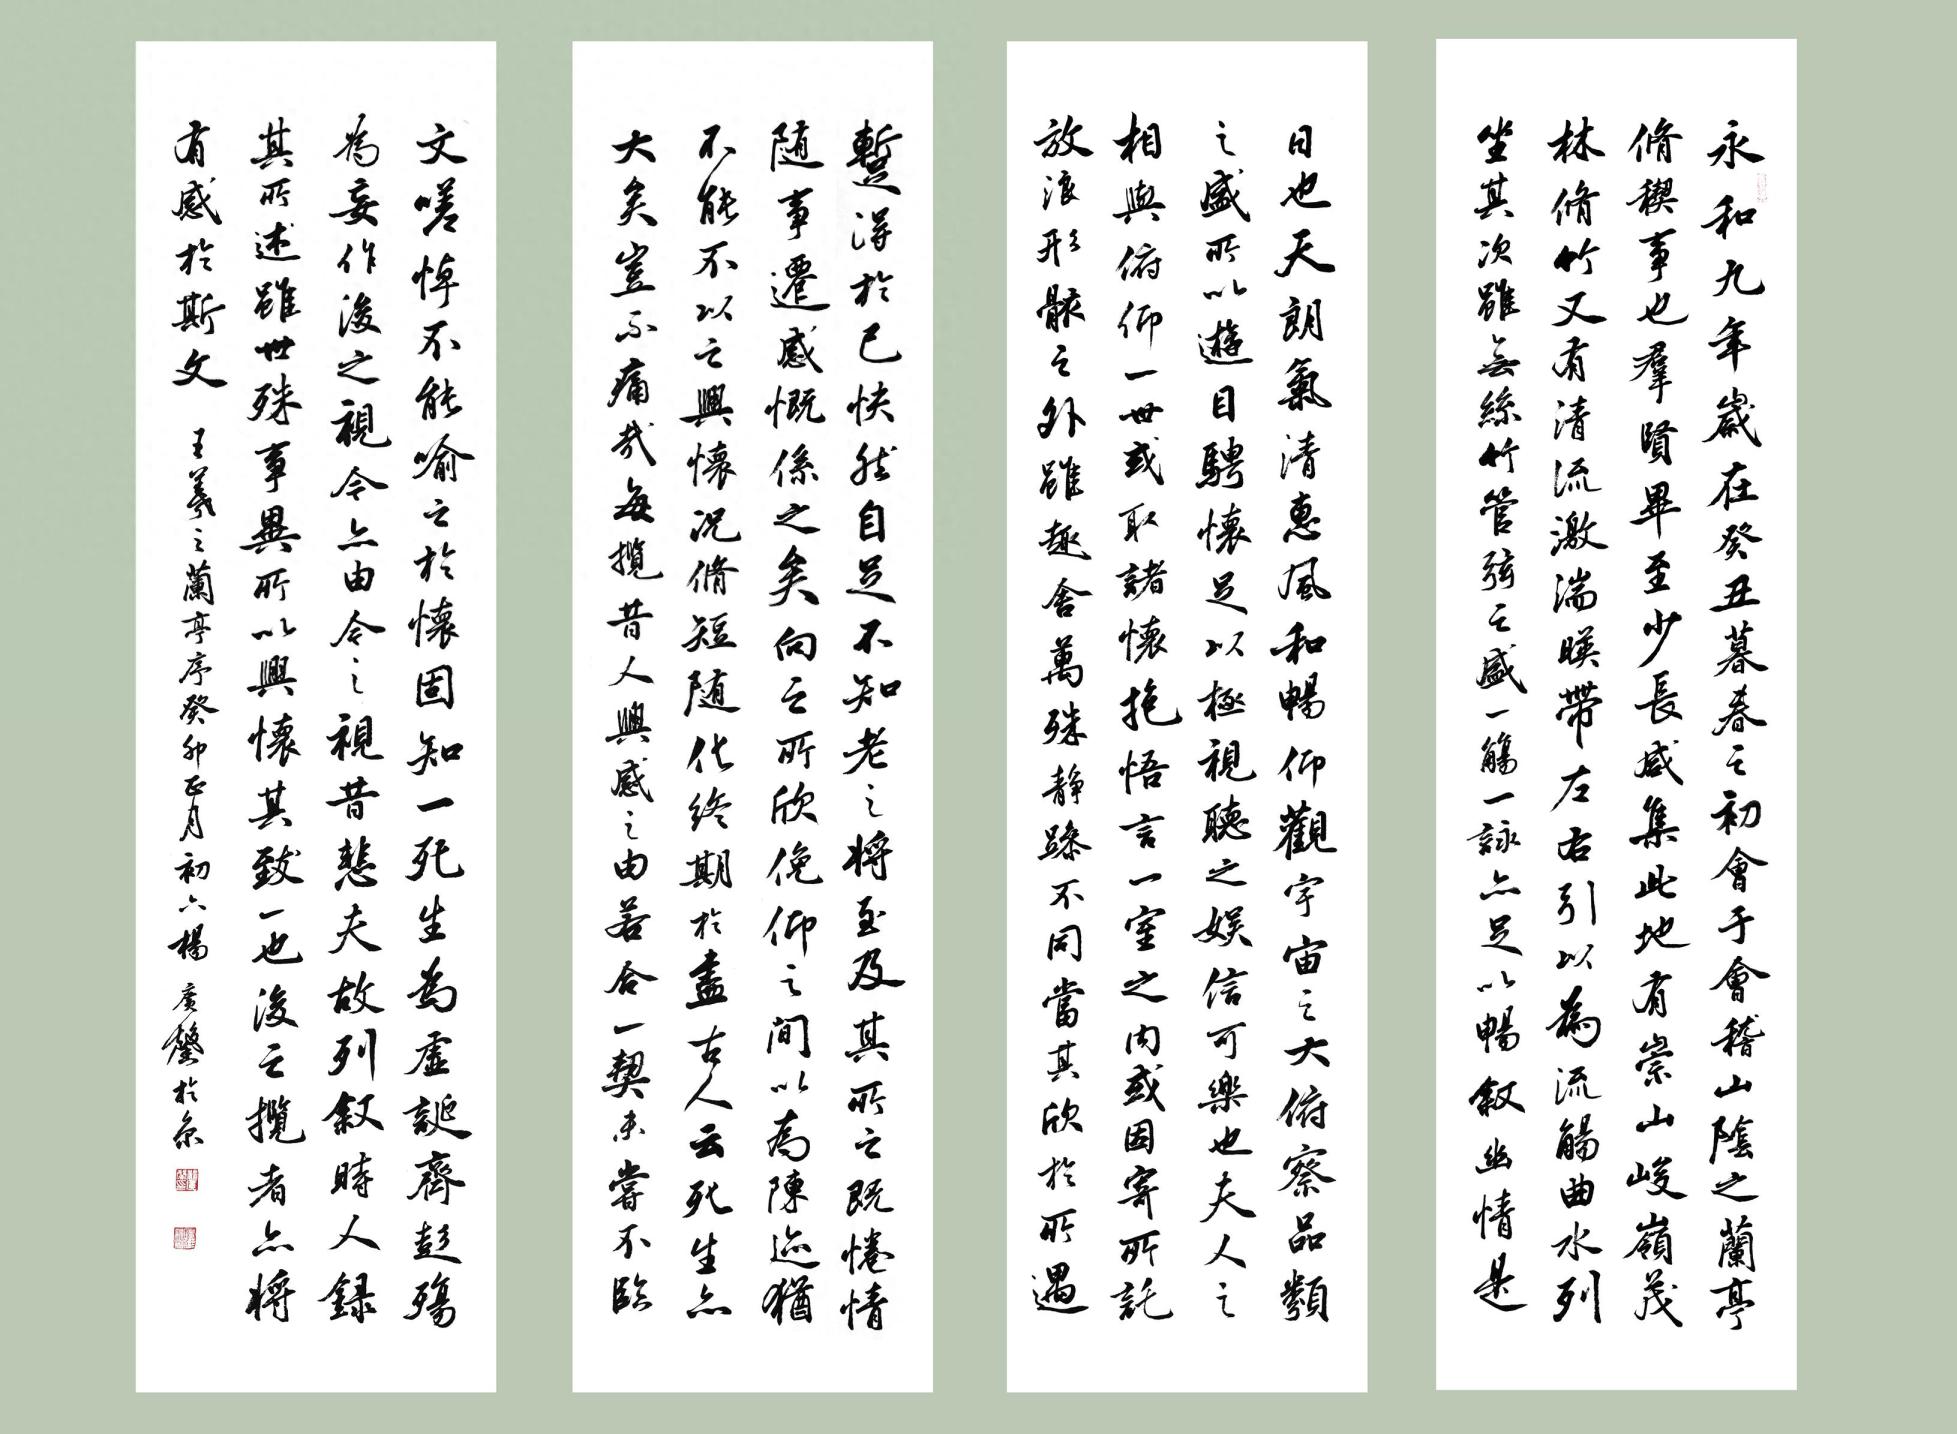 永和九年歲在癸丑暮春之初會于會稽山陰之蘭亭
脩稧事也羣賢畢至少長咸集此地有崇山峻嶺茂
林脩竹又有清流激湍暎帶左右引以為流觴曲水列
坐其次雖無絲竹管弦之盛一觴一詠亦足以暢敘幽情是
日也天朗氣清惠風和暢仰觀宇宙之大俯察品類
之盛所以遊目騁懷足以極視聽之娛信可樂也夫人之
相與俯仰一世或取諸懷抱悟言一室之內或因寄所託
放浪形骸之外雖趣舍萬殊靜躁不同當其欣於所遇
蹔得於己快然自足不知老之將至及其所之既惓情
隨事遷感慨係之矣向之所欣俛仰之間以為陳迹猶
不能不以之興懷況脩短隨化終期於盡古人云死生亦
大矣豈不痛哉每攬昔人興感之由若合一契未嘗不臨
文嗟悼不能喻之於懷固知一死生為虛誕齊彭殤
為妄作後之視今亦由今之視昔悲夫故列敘時人錄
其所述雖世殊事異所以興懷其致一也後之攬者亦將
有感於斯文 王羲之蘭亭序癸卯正月初六楊廣馨於京